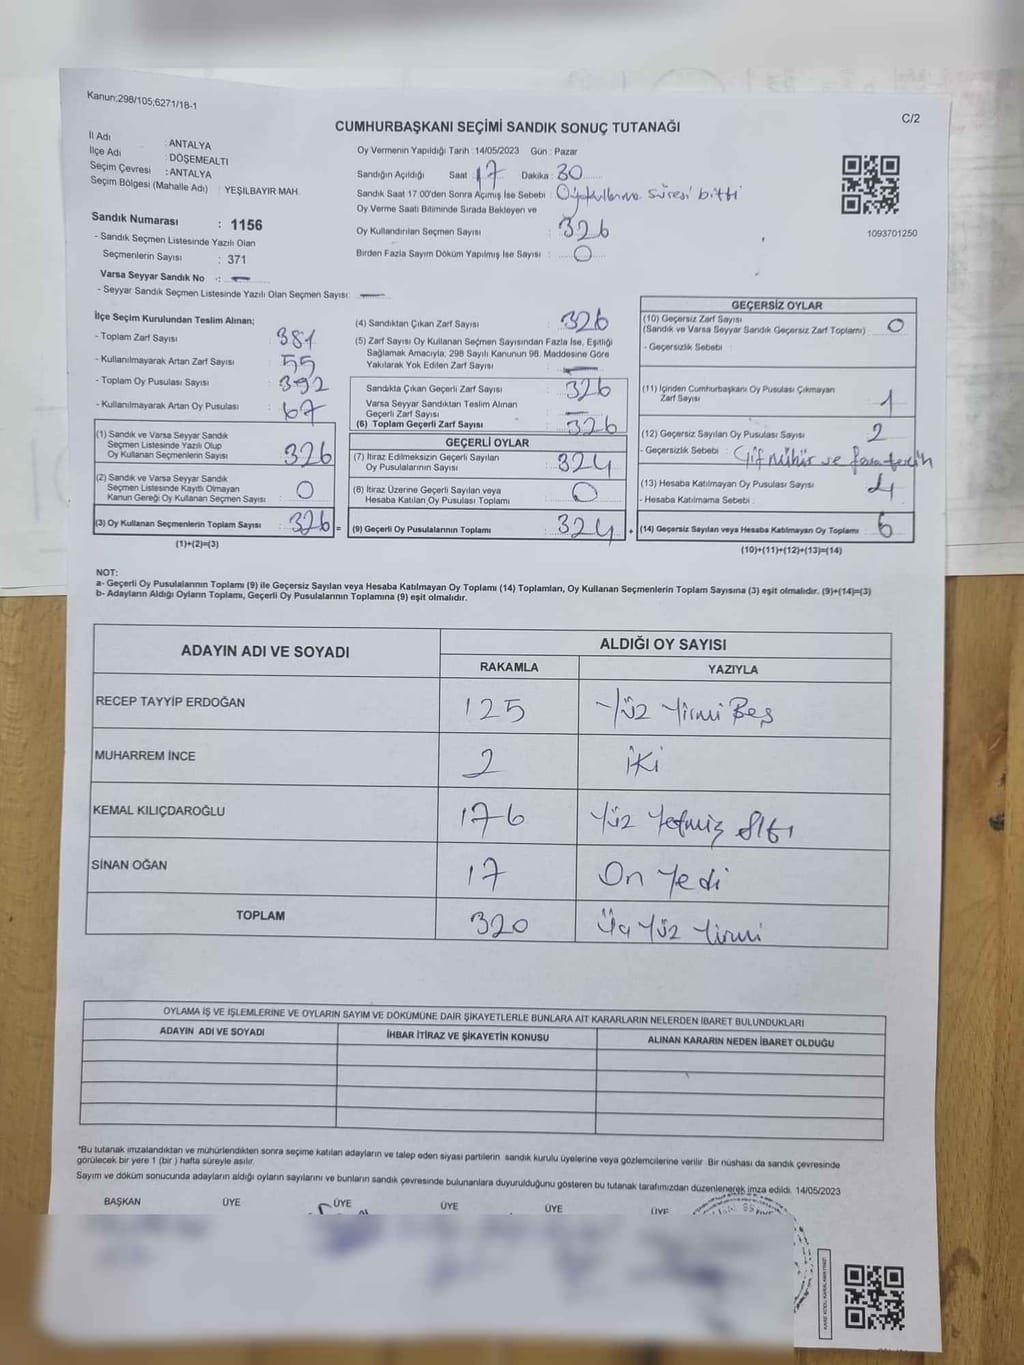 Kanun;298/105;6271/18-1
C/2
CUMHURBAŞKANI SEÇİMİ SANDIK SONUÇ TUTANAĞI
İl Adı : ANTALYA
İlçe Adı : DÖŞEMEALTI
Seçim Çevresi : ANTALYA
Seçim Bölgesi (Mahalle Adı) : YEŞİLBAYIR MAH.
Sandık Numarası : 1156
- Sandık Seçmen Listesinde Yazılı Olan
Seçmenlerin Sayısı : 371
Varsa Seyyar Sandık No : —
- Seyyar Sandık Seçmen Listesinde Yazılı Olan Seçmen Sayısı: —
Oy Vermenin Yapıldığı Tarih : 14/05/2023 Gün : Pazar
Sandığın Açıldığı Saat : 17 Dakika : 30
Sandık Saat 17.00'den Sonra Açımış İse Sebebi : Oy kullanma süresi bitti
Oy Verme Saati Bitiminde Sırada Bekleyen ve
Oy Kullandırılan Seçmen Sayısı : 326
Birden Fazla Sayım Döküm Yapılmış İse Sayısı : 0
1093701250
İlçe Seçim Kurulundan Teslim Alınan;
- Toplam Zarf Sayısı : 381
- Kullanılmayarak Artan Zarf Sayısı : 55
- Toplam Oy Pusulası Sayısı : 392
- Kullanılmayarak Artan Oy Pusulası : 67
(1) Sandık ve Varsa Seyyar Sandık
Seçmen Listesinde Yazılı Olup
Oy Kullanan Seçmenlerin Sayısı : 326
(2) Sandık ve Varsa Seyyar Sandık
Seçmen Listesinde Kayıtlı Olmayan
Kanun Gereği Oy Kullanan Seçmen Sayısı : 0
(3) Oy Kullanan Seçmenlerin Toplam Sayısı : 326 =
(1)+(2)=(3)
(4) Sandıktan Çıkan Zarf Sayısı : 326
(5) Zarf Sayısı Oy Kullanan Seçmen Sayısından Fazla İse, Eşitliği
Sağlamak Amacıyla; 298 Sayılı Kanunun 98. Maddesine Göre
Yakılarak Yok Edilen Zarf Sayısı : —
Sandıkta Çıkan Geçerli Zarf Sayısı : 326
Varsa Seyyar Sandıktan Teslim Alınan
Geçerli Zarf Sayısı : —
(6) Toplam Geçerli Zarf Sayısı : 326
GEÇERLİ OYLAR
(7) İtiraz Edilmeksizin Geçerli Sayılan
Oy Pusulalarının Sayısı : 324
(8) İtiraz Üzerine Geçerli Sayılan veya
Hesaba Katılan Oy Pusulası Toplamı : 0
(9) Geçerli Oy Pusulalarının Toplamı : 324 +
GEÇERSİZ OYLAR
(10) Geçersiz Zarf Sayısı
(Sandık ve Varsa Seyyar Sandık Geçersiz Zarf Toplamı) : 0
- Geçersizlik Sebebi :
(11) İçinden Cumhurbaşkanı Oy Pusulası Çıkmayan
Zarf Sayısı : 1
(12) Geçersiz Sayılan Oy Pusulası Sayısı : 2
- Geçersizlik Sebebi : Çif mühür ve
(13) Hesaba Katılmayan Oy Pusulası Sayısı : 4
- Hesaba Katılmama Sebebi :
(14) Geçersiz Sayılan veya Hesaba Katılmayan Oy Toplamı : 6
(10)+(11)+(12)+(13)=(14)
NOT:
a- Geçerli Oy Pusulalarının Toplamı (9) ile Geçersiz Sayılan veya Hesaba Katılmayan Oy Toplamı (14) Toplamları, Oy Kullanan Seçmenlerin Toplam Sayısına (3) eşit olmalıdır. (9)+(14)=(3)
b- Adayların Aldığı Oyların Toplamı, Geçerli Oy Pusulalarının Toplamına (9) eşit olmalıdır.
ADAYIN ADI VE SOYADI ALDIĞI OY SAYISI
RAKAMLA YAZIYLA
RECEP TAYYİP ERDOĞAN 125 Yüz Yirmi Beş
MUHARREM İNCE 2 İKİ
KEMAL KILIÇDAROĞLU 176 Yüz Yetmiş Altı
SİNAN OĞAN 17 On Yedi
TOPLAM 320 Üç Yüz Yirmi
OYLAMA İŞ VE İŞLEMLERİNE VE OYLARIN SAYIM VE DÖKÜMÜNE DAİR ŞİKAYETLERLE BUNLARA AİT KARARLARIN NELERDEN İBARET BULUNDUKLARI
ADAYIN ADI VE SOYADI İHBAR İTİRAZ VE ŞİKAYETİN KONUSU ALINAN KARARIN NEDEN İBARET OLDUĞU
*Bu tutanak imzalandıktan ve mühürlendikten sonra seçime katılan adayların ve talep eden siyasi partilerin sandık kurulu üyelerine veya gözlemcilerine verilir. Bir nüshası da sandık çevresinde
görülecek bir yere 1 (bir ) hafta süreyle asılır.
Sayım ve döküm sonucunda adayların aldığı oyların sayılarını ve bunların sandık çevresinde bulunanlara duyurulduğunu gösteren bu tutanak tarafımızdan düzenlenerek imza edildi. 14/05/2023
BAŞKAN ÜYE ÜYE ÜYE ÜYE ÜYE